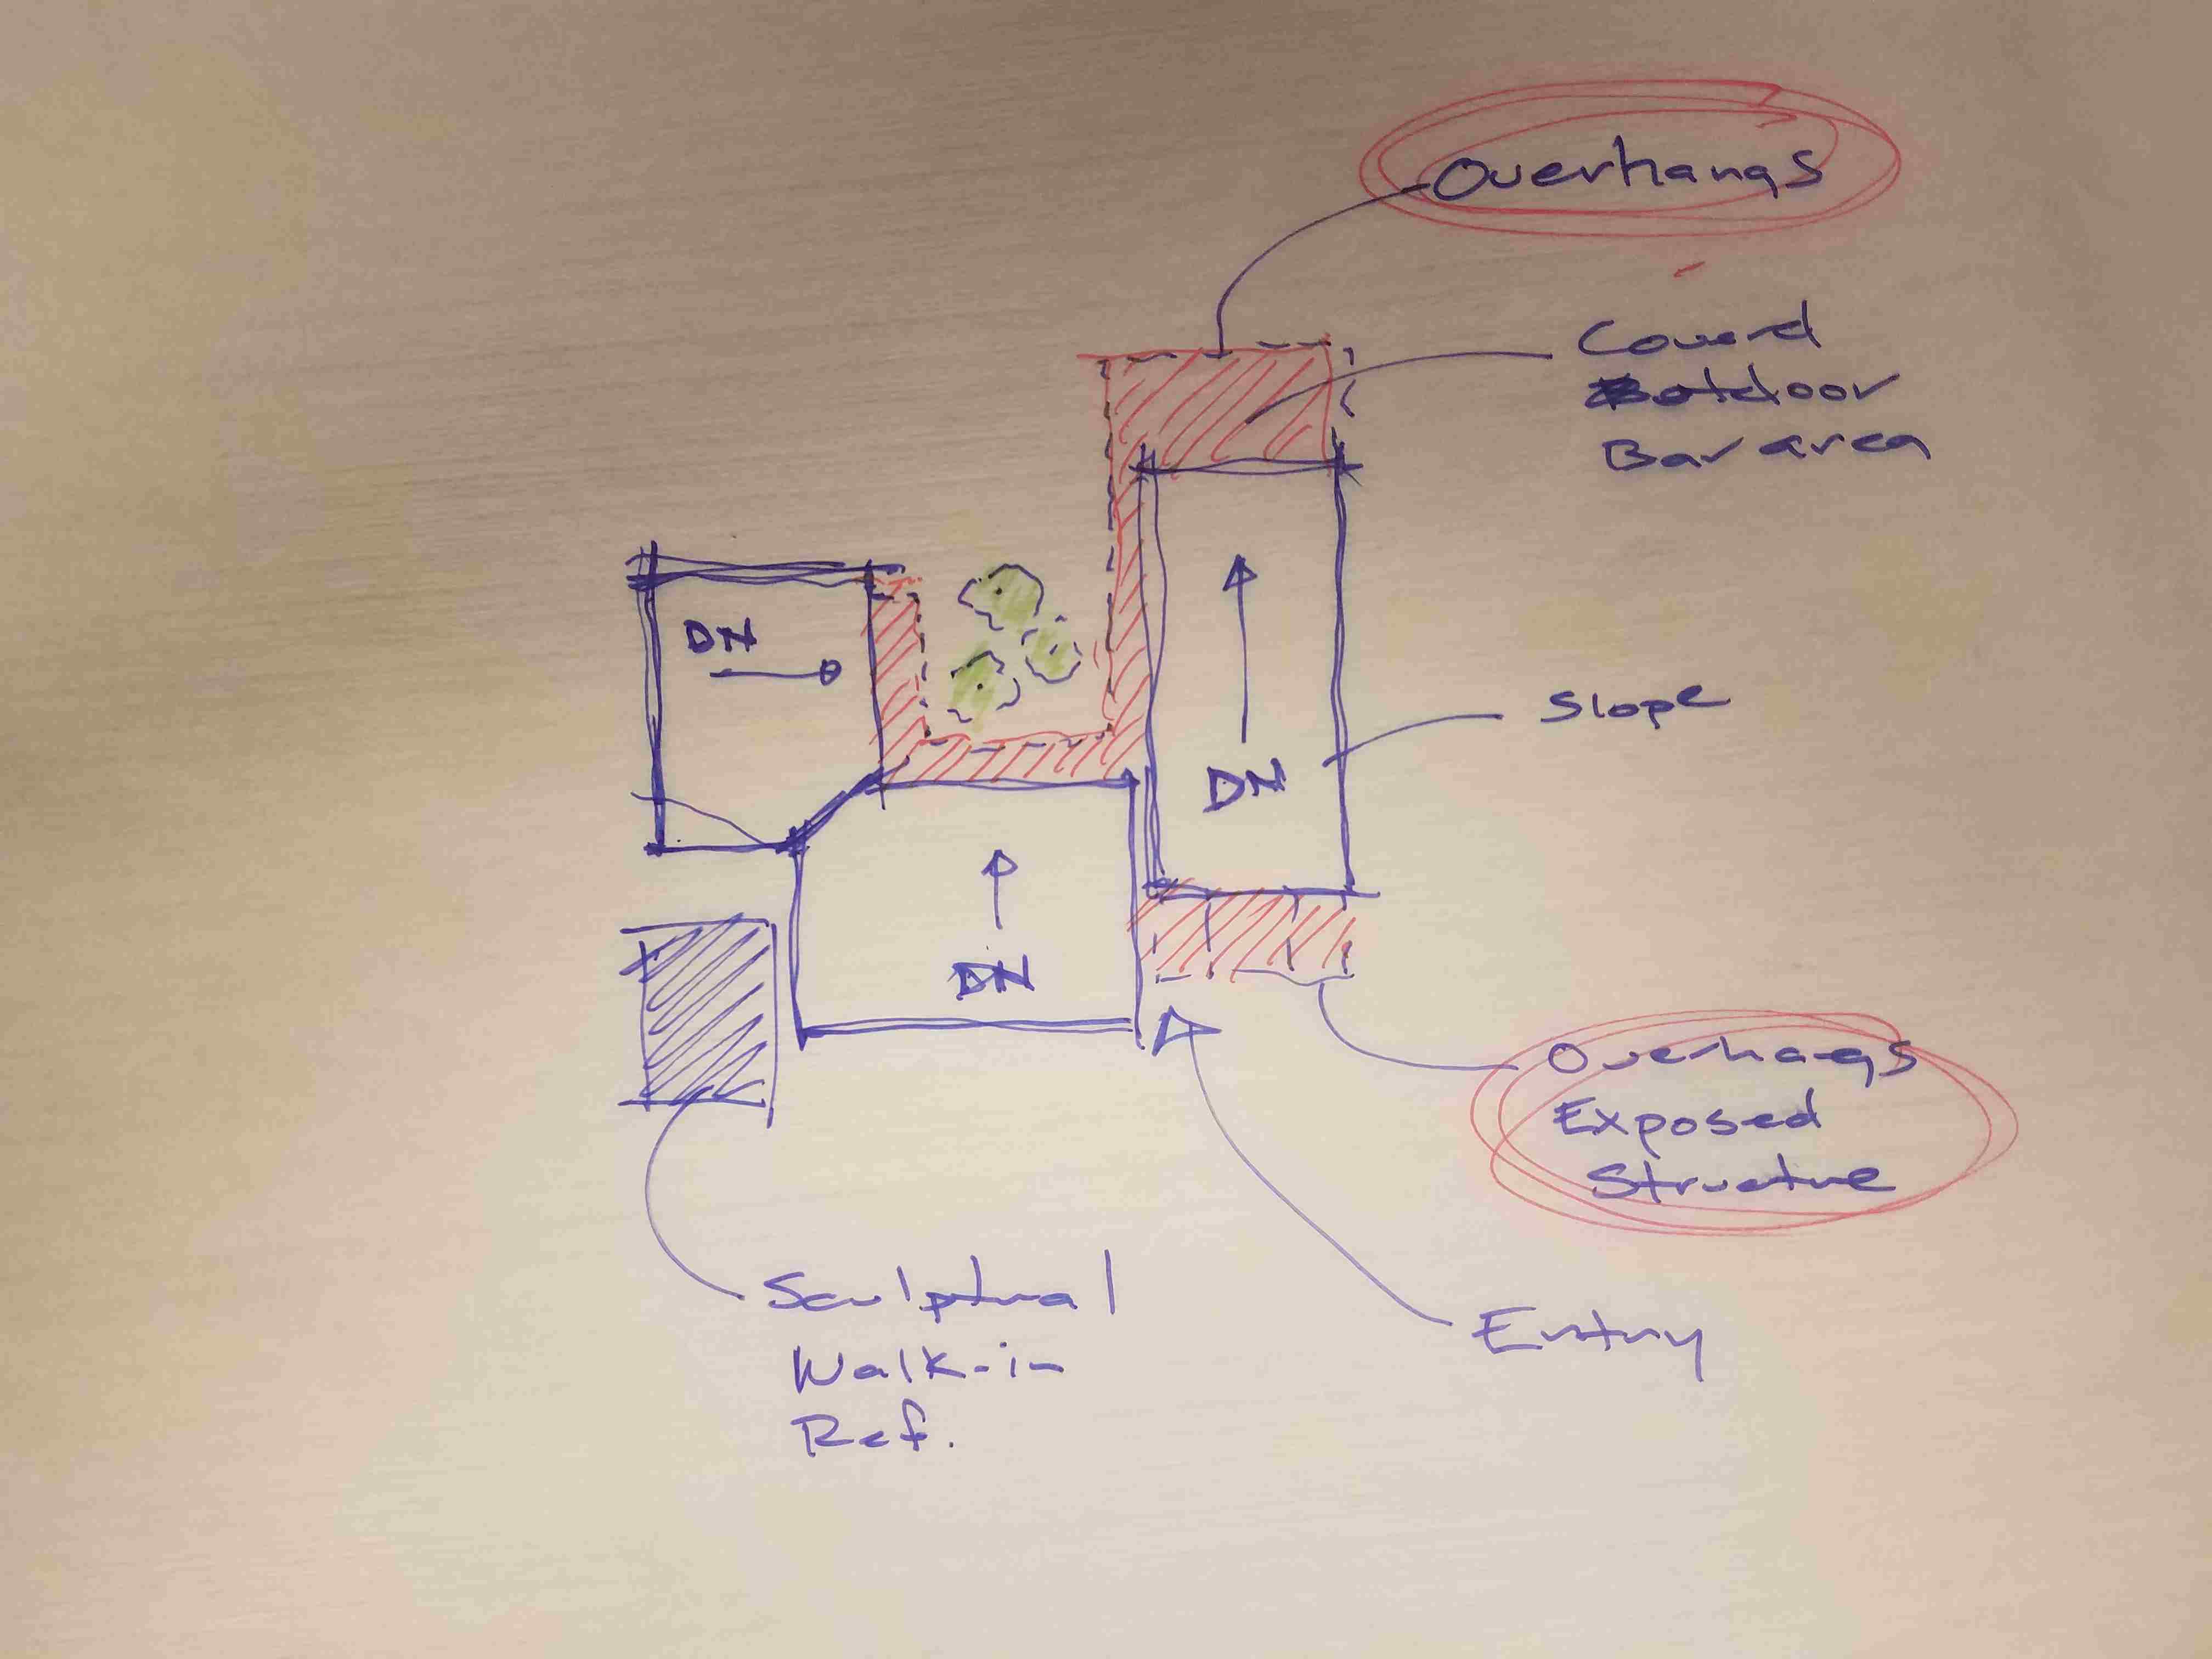 Overhangs
Coverd
Outdoor
Bar area
DN
DN
Slope
DN
Overhags
Exposed
Structure
Sculptural
Walk-in
Ref.
Entry